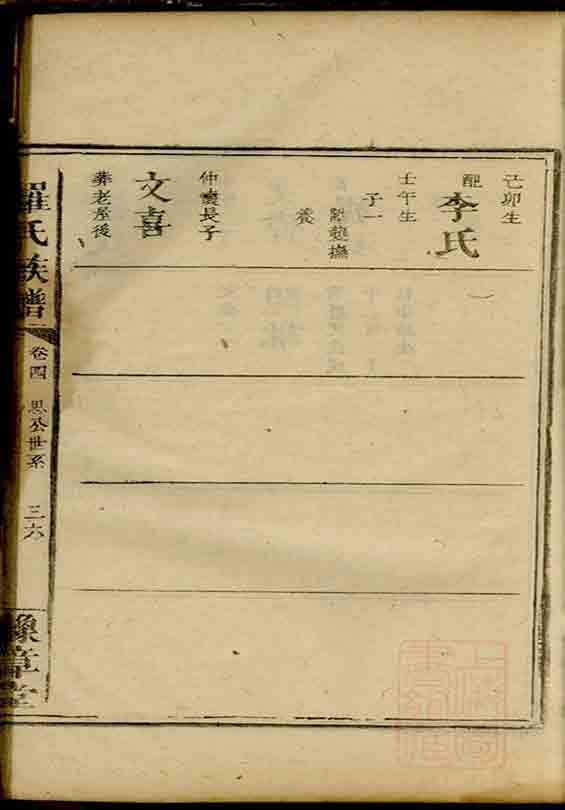 己卯生
配李氏
壬午生
子一
養
仲㐮長子
文喜
葬老屋後
羅氏族譜
卷四
思公世系
三六
豫章堂